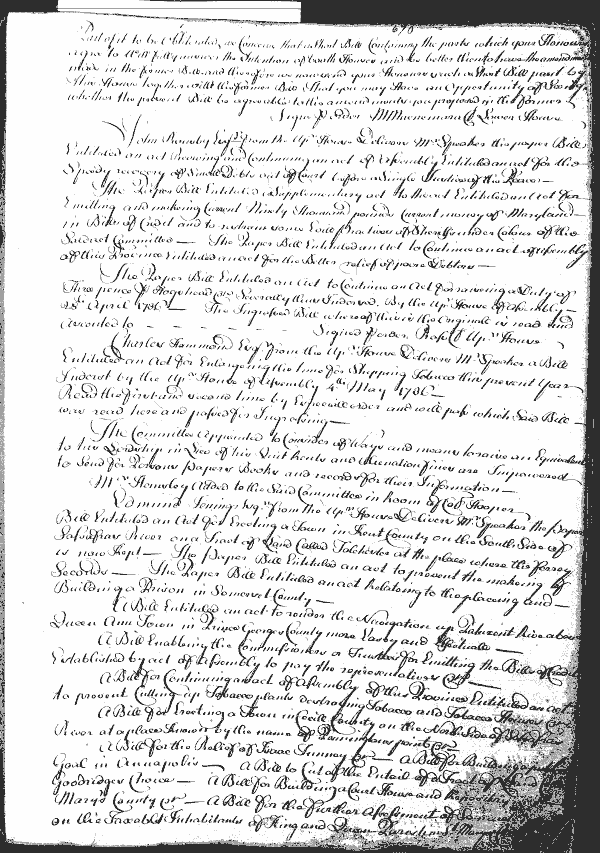 698
Part of it to be Offended, we Conceive that a Short Bill Containing the parts which your Honours
agree to Will fully answer the Intention of both Houses and be better than to have the amendments
made in the former Bill and therefore we now send your Honours such a Short Bill past by
this House together with the former Bill that you may have an Opportunity of Seeing
whether the present Bill be agreeable to the amendments you proposed in the former
Signed p Order M Macnemara Cl Lower House
John Rousby Esqr. from the Upr House Delivers Mr Speaker the paper Bill
Entituled an act Reviving and Continuing an act of Assembly Entituled an act for the
Speedy recovery of Small Debts out of Court before a Single Justice of the Peace—
The Paper Bill Entituled a Supplementary act to the act Entituled an Act for
Emitting and making Current Ninety Thousand pounds Current money of Maryland
in Bills of Credit and to restrain some Evil practices of Sheriffs under Colour of the
Said act Committed— The Paper Bill Entituled an act to Continue an act of Assembly
of this Province Entituled an act for the Better relief of poor Debtors—
The Paper Bill Entituled an Act to Continue an Act for raising a Duty of
Three pence p Hogshead are Severally thus Indorsed. By the Upr House of Assembly—
28th April 1736— The Ingrossed Bill whereof this is the Original is read and
assented to — — — Signed p Order Ross Cl Upr House
Charles Hammond Esqr. from the Upr. House Delivers Mr Speaker a Bill
Entituled an Act for Enlarging the time for Shipping Tobacco this present Year
Indorst by the Upr House of Assembly 4th May 1736—
Read the first and second time by Especial order and will pass which Said Bill—
was read here and passed for Ingrossing—
The Committee Appointed to Consider of Ways and means to raise an Equivalent
to his Lordship in Lieu of his Quit Rents and Alienation fines are Impowered
to Send for Persons Papers Books and records for their Information—
Mr Hemsley Added to the Said Committee in Room of Col Hooper
Edmund Jenings Esqr. from the Upr House Delivers Mr Speaker the paper
Bill Entituled an Act for Erecting a Town in Kent County on the South Side of
Sassafras River on a Tract of Land Called Tolchester at the place where the ferry
is now Kept— The Paper Bill Entituled an act to prevent the making of
Seconds— The Paper Bill Entituled an act relating to the placing and—
Building a Prison in Somerset County—
A Bill Entituled an act to render the Navigation up Patuxent River above
Queen Ann Town in Prince Georges County more Easy and Effectuale—
A Bill Enabling the Commissioners or Trustees for Emitting the Bills of Credit
Established by act of Assembly to pay the representatives &c—
A Bill for Continuing an act of Assembly of this Province Entituled an act
to prevent Cutting up Tobacco plants destroying Tobacco and Tobacco Houses &c
A Bill for Erecting a Town in Cecil County on the North Side of Sassafras
River at a place Known by the name of Pennington's point &c—
A Bill for the Relief of Isaac &c— A Bill for Building a
Goal in Annapolis— A Bill to Cut of the Entail of a Tract of
Goodridges Choice— A Bill for Building a Court House and
Marys County &c— A Bill for the Further Assessment of
on the Taxable Inhabitants of King and Queen Parish in St Marys